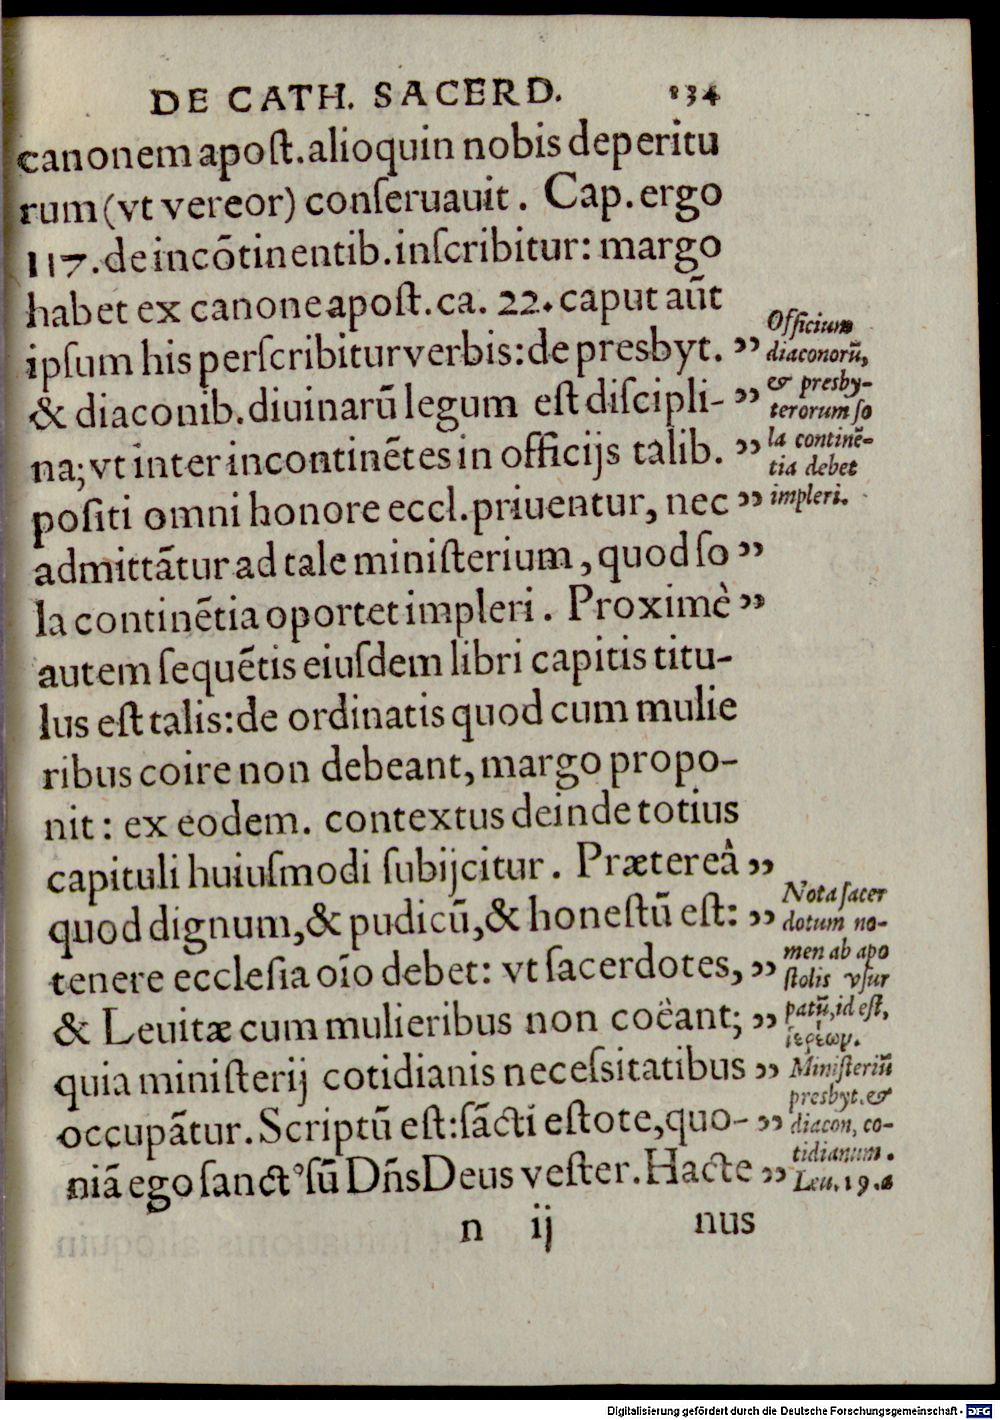 DE CATH. SACERD. 134
canonem apoſt. alioquin nobis deperitu
rum (vt vereor) conſeruauit. Cap. ergo
117. de incõtinentib. inſcribitur: margo
habet ex canone apoſt. ca. 22. caput aũt
ipſum his perſcribitur verbis: de presbyt. ”
& diaconib. diuinarũ legum eſt diſcipli- ”
na; vt inter incontinẽtes in officijs talib. ”
poſiti omni honore eccl. priuentur, nec ”
admittãtur ad tale miniſterium, quod ſo ”
la continẽtia oportet impleri. Proximè ”
autem ſequẽtis eiuſdem libri capitis titu-
lus eſt talis: de ordinatis quod cum mulie
ribus coire non debeant, margo propo-
nit: ex eodem. contextus deinde totius
capituli huiuſmodi ſubijcitur. Prætereâ ”
quod dignum, & pudicũ, & honeſtũ eſt: ”
tenere eccleſia oĩo debet: vt ſacerdotes, ”
& Leuitæ cum mulieribus non coëant; ”
quia miniſterij cotidianis neceſsitatibus ”
occupãtur. Scriptũ eſt: ſãcti eſtote, quo- ”
niã ego ſanctꝰ ſũ Dñs Deus veſter. Hacte ”
n ij nus
Officium
diaconorũ,
& presby-
terorum ſo
la continẽ-
tia debet
impleri.
Nota ſacer
dotum no-
men ab apo
ſtolis vſur
patũ, id eſt,
ἱερέων.
Miniſteriũ
presbyt. &
diacon, co-
tidianum.
Leu. 19. a
Digitalisierung gefördert durch die Deutsche Forschungsgemeinschaft - DFG